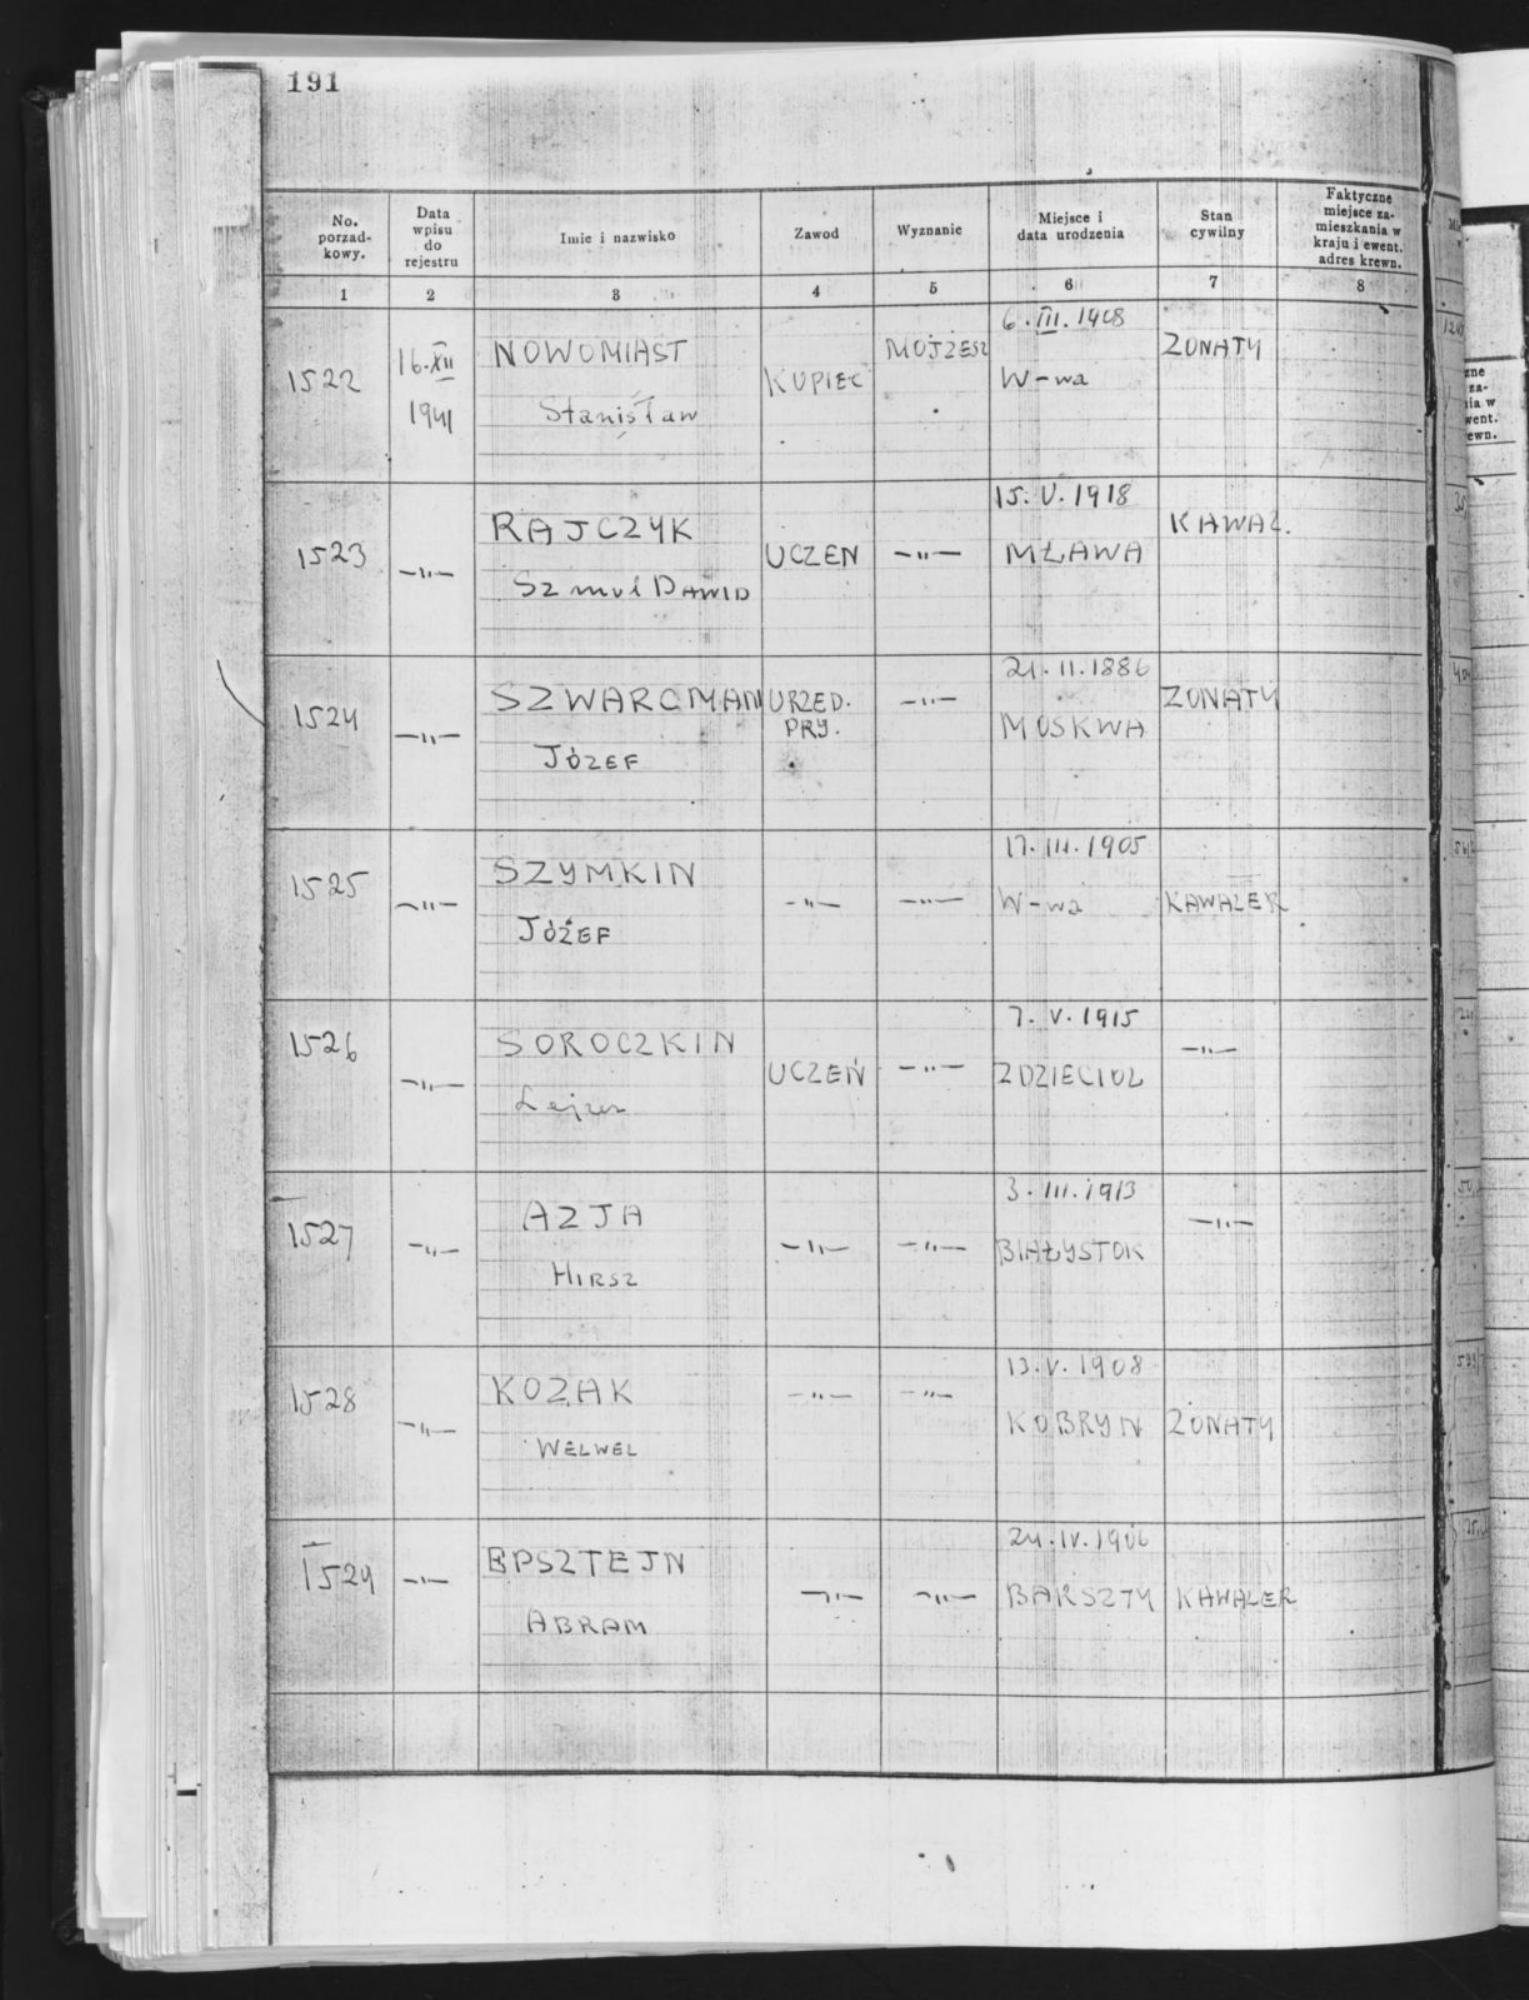 191
No. porzad- kowy.
Data wpisu do rejestru
Imie i nazwisko
Zawod
Wyznanie
Miejsce i data urodzenia
Stan cywilny
Faktyczne miejsce za- mieszkania w kraju i ewent. adres krewn.
1 2 3 4 5 6 7 8
1522 16.XII 1941 NOWOMIAST Stanisław KUPIEC MOJŻESZ 6.III.1908 W-wa ŻONATY
1523 —"— RAJCZYK Szmul DAWID UCZEN —"— 15.V.1918 MŁAWA KAWAL.
1524 —"— SZWARCMAN JÓZEF URZED. PRY. —"— 21.II.1886 MOSKWA ŻONATY
1525 —"— SZYMKIN JÓZEF —"— —"— 17.III.1905 W-wa KAWALER
1526 —"— SOROCZKIN Lejzer UCZEŃ —"— 7.V.1915 ZDZIECIOL —"—
1527 —"— AZJA HIRSZ —"— —"— 3.III.1913 BIAŁYSTOK —"—
1528 —"— KOZAK WELWEL —"— —"— 13.V.1908 KOBRYN ŻONATY
1529 —"— EPSZTEJN ABRAM —"— —"— 24.IV.1906 BARSZTY KAWALER
zne
za-
nia w
went.
ewn.